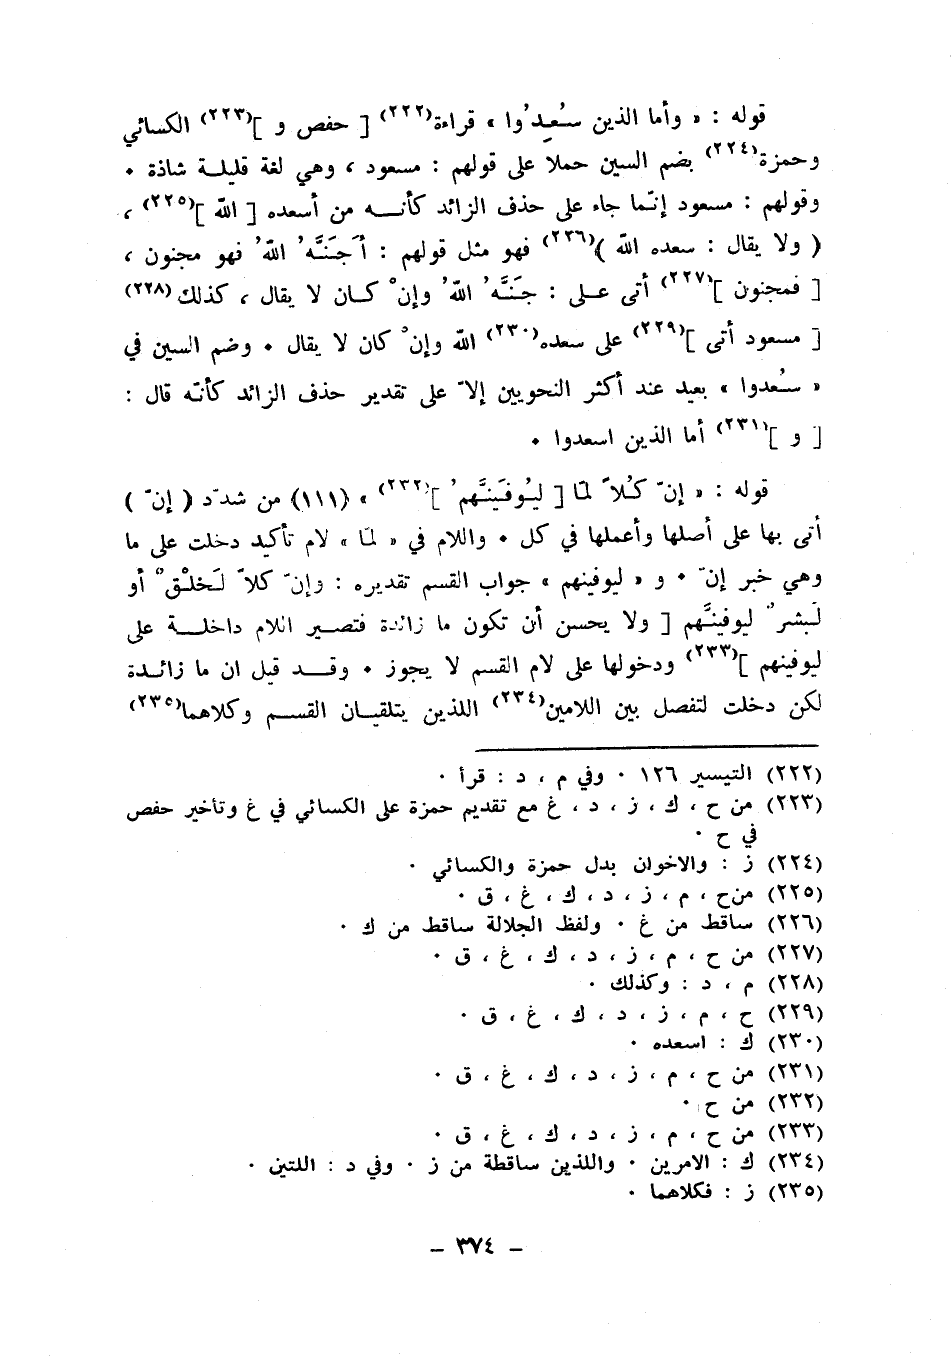 قوله : « وأما الذين سُعِدُوا » قراءة(٢٢٢) [ حفص و ](٢٢٣) الكسائي
وحمزة(٢٢٤) بضم السين حملا على قولهم : مسعود ، وهي لغة قليلة شاذة ٠
وقولهم : مسعود إنّما جاء على حذف الزائد كأنه من أسعده [ الله ](٢٢٥) ،
( ولا يقال : سعده الله )(٢٢٦) فهو مثل قولهم : أَجَنَّهُ اللهُ فهو مجنون ،
[ فمجنون ](٢٢٧) أتى على : جَنَّهُ اللهُ وإنْ كان لا يقال ، كذلك(٢٢٨)
[ مسعود أتى ](٢٢٩) على سعده(٢٣٠) الله وإنْ كان لا يقال ٠ وضم السين في
« سُعدوا » بعيد عند أكثر النحويين إلاّ على تقدير حذف الزائد كأنّه قال :
[ و ](٢٣١) أما الذين اسعدوا ٠
قوله : « إنّ كُلاً لمّا [ ليُوفَيَنَّهم ](٢٣٢) » (١١١) من شدّد ( إنّ )
أتى بها على أصلها وأعملها في كل ٠ واللام في « لمَا » لام تأكيد دخلت على ما
وهي خبر إنّ ٠ و « ليوفينهم » جواب القسم تقديره : وإنّ كلاً لَخلْقٌ أو
لَبشرٌ ليوفينَّهم [ ولا يحسن أن تكون ما زائدة فتصير اللام داخلة على
ليوفينهم ](٢٣٣) ودخولها على لام القسم لا يجوز ٠ وقد قيل ان ما زائدة
لكن دخلت لتفصل بين اللامين(٢٣٤) اللذين يتلقيان القسم وكلاهما(٢٣٥)
(٢٢٢) التيسير ١٢٦ ٠ وفي م ، د : قرأ ٠
(٢٢٣) من ح ، ك ، ز ، د ، غ مع تقديم حمزة على الكسائي في غ وتأخير حفص
في ح ٠
(٢٢٤) ز : والاخوان بدل حمزة والكسائي ٠
(٢٢٥) من ح ، م ، ز ، د ، ك ، غ ، ق ٠
(٢٢٦) ساقط من غ ٠ ولفظ الجلالة ساقط من ك ٠
(٢٢٧) من ح ، م ، ز ، د ، ك ، غ ، ق ٠
(٢٢٨) م ، د : وكذلك ٠
(٢٢٩) ح ، م ، ز ، د ، ك ، غ ، ق ٠
(٢٣٠) ك : اسعده ٠
(٢٣١) من ح ، م ، ز ، د ، ك ، غ ، ق ٠
(٢٣٢) من ح ٠
(٢٣٣) من ح ، م ، ز ، د ، ك ، غ ، ق ٠
(٢٣٤) ك : الامرين ٠ واللذين ساقطة من ز ٠ وفي د : اللتين ٠
(٢٣٥) ز : فكلاهما ٠
– ٣٧٤ –